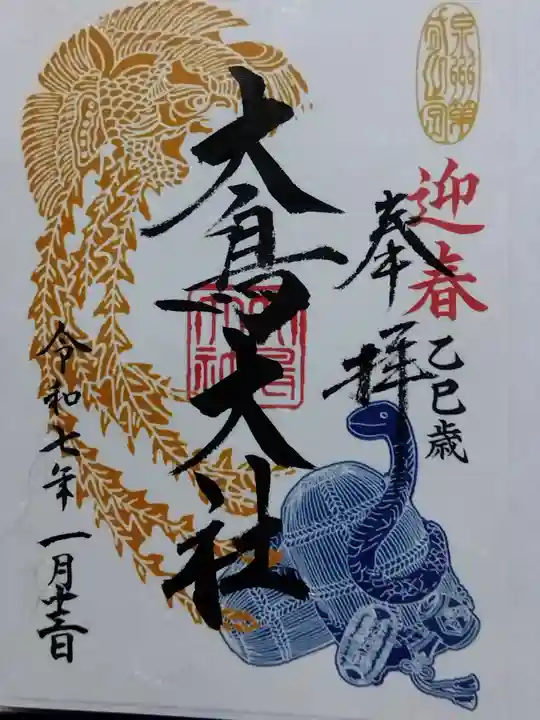 迎春
奉拝
乙巳歳
大鳥大社
令和七年一月十三日